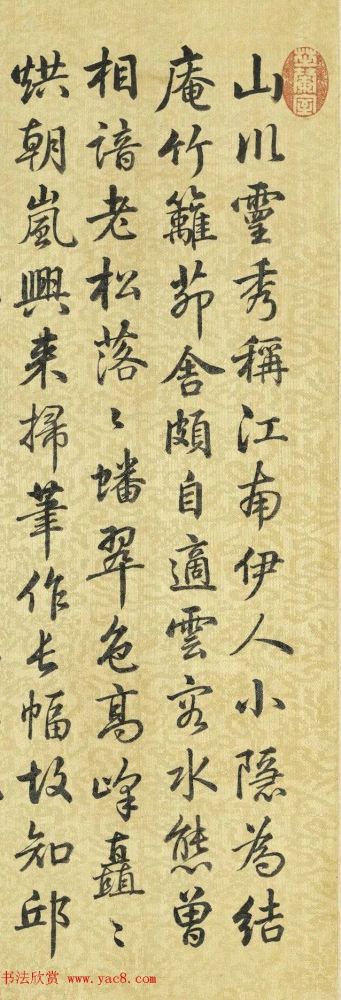 山川靈秀稱江南伊人小隱為結
庵竹籬茆舍頗自適雲容水態曽
相諳老松落〻蟠翠色高峰矗〻
烘朝嵐興来掃筆作長幅故知邱
书法欣赏 www.yac8.com